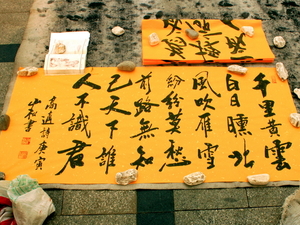 千里黄雲
白日曛北
風吹雁雪
紛紛莫愁
前路無知
己天下誰
人不識君
高適詩庚寅